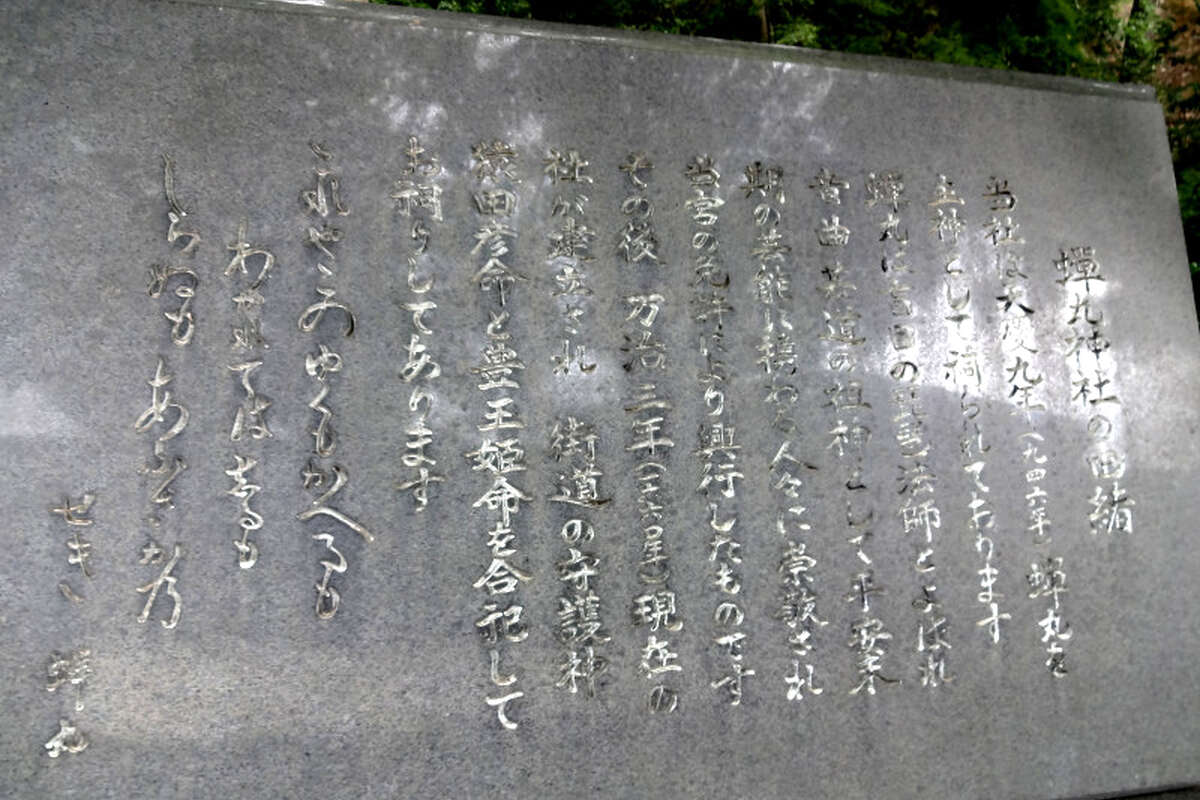 蟬丸神社の由緒
当社は天慶九年(九四六年)蟬丸を
主神として祠られております
蟬丸は盲目の琵琶法師とよばれ
音曲芸道の祖神として平安末
期の芸能に携わる人々に崇敬され
当宮の免許により興行したものです
その後 万治三年(一六六〇年)現在の
社が建立され 街道の守護神
猿田彦命と豊玉姫命を合祀して
お祠りしてあります
これやこの ゆくもかへるも
わかれては しるも
しらぬも あふさか乃
せき 蟬丸